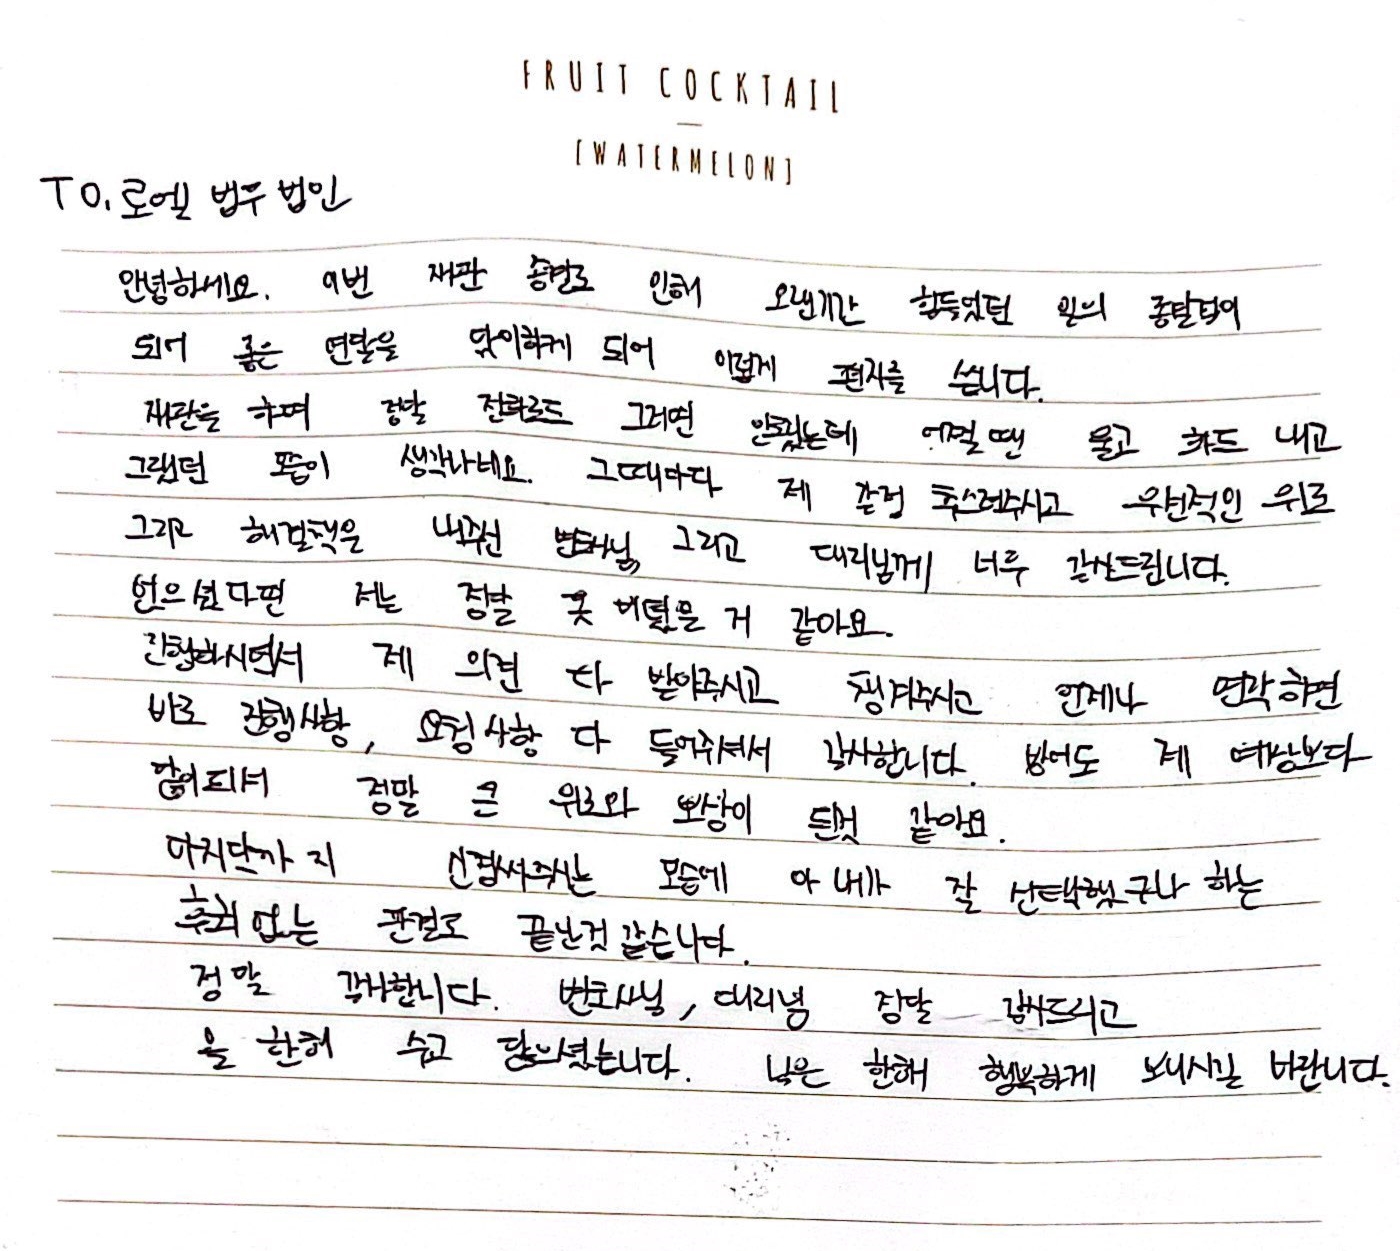 FRUIT COCKTAIL
[WATERMELON]
TO. 로엘 법무법인
안녕하세요. 이번 재판 종결로 인해 오랜기간 힘들었던 일의 종말점이
되어 좋은 연말을 맞이하게 되어 이렇게 편지를 씁니다.
재판을 하며 정말 전화로도 그러면 안됐는데 어쩔땐 울고 화도 내고
그랬던 모습이 생각나네요. 그때마다 제 감정 추스려주시고 우선적인 위로
그리고 해결책을 내주신 변호사님 그리고 대리님께 너무 감사드립니다.
없으셨다면 저는 정말 못 버텼을 거 같아요.
진행하시면서 제 의견 다 받아주시고 챙겨주시고 언제나 연락하면
바로 진행사항, 요청사항 다 들어주셔서 감사합니다. 방어도 제 예상보다
많이되셔 정말 큰 위로와 보상이 된것 같아요.
마지막까지 신경써주시는 모습에 아 내가 잘 선택했구나 하는
후회없는 판결로 끝난것 같습니다.
정말 감사합니다. 변호사님, 대리님 정말 감사드리고
올 한해 수고 많으셨습니다. 남은 한해 행복하게 보내시길 바랍니다.